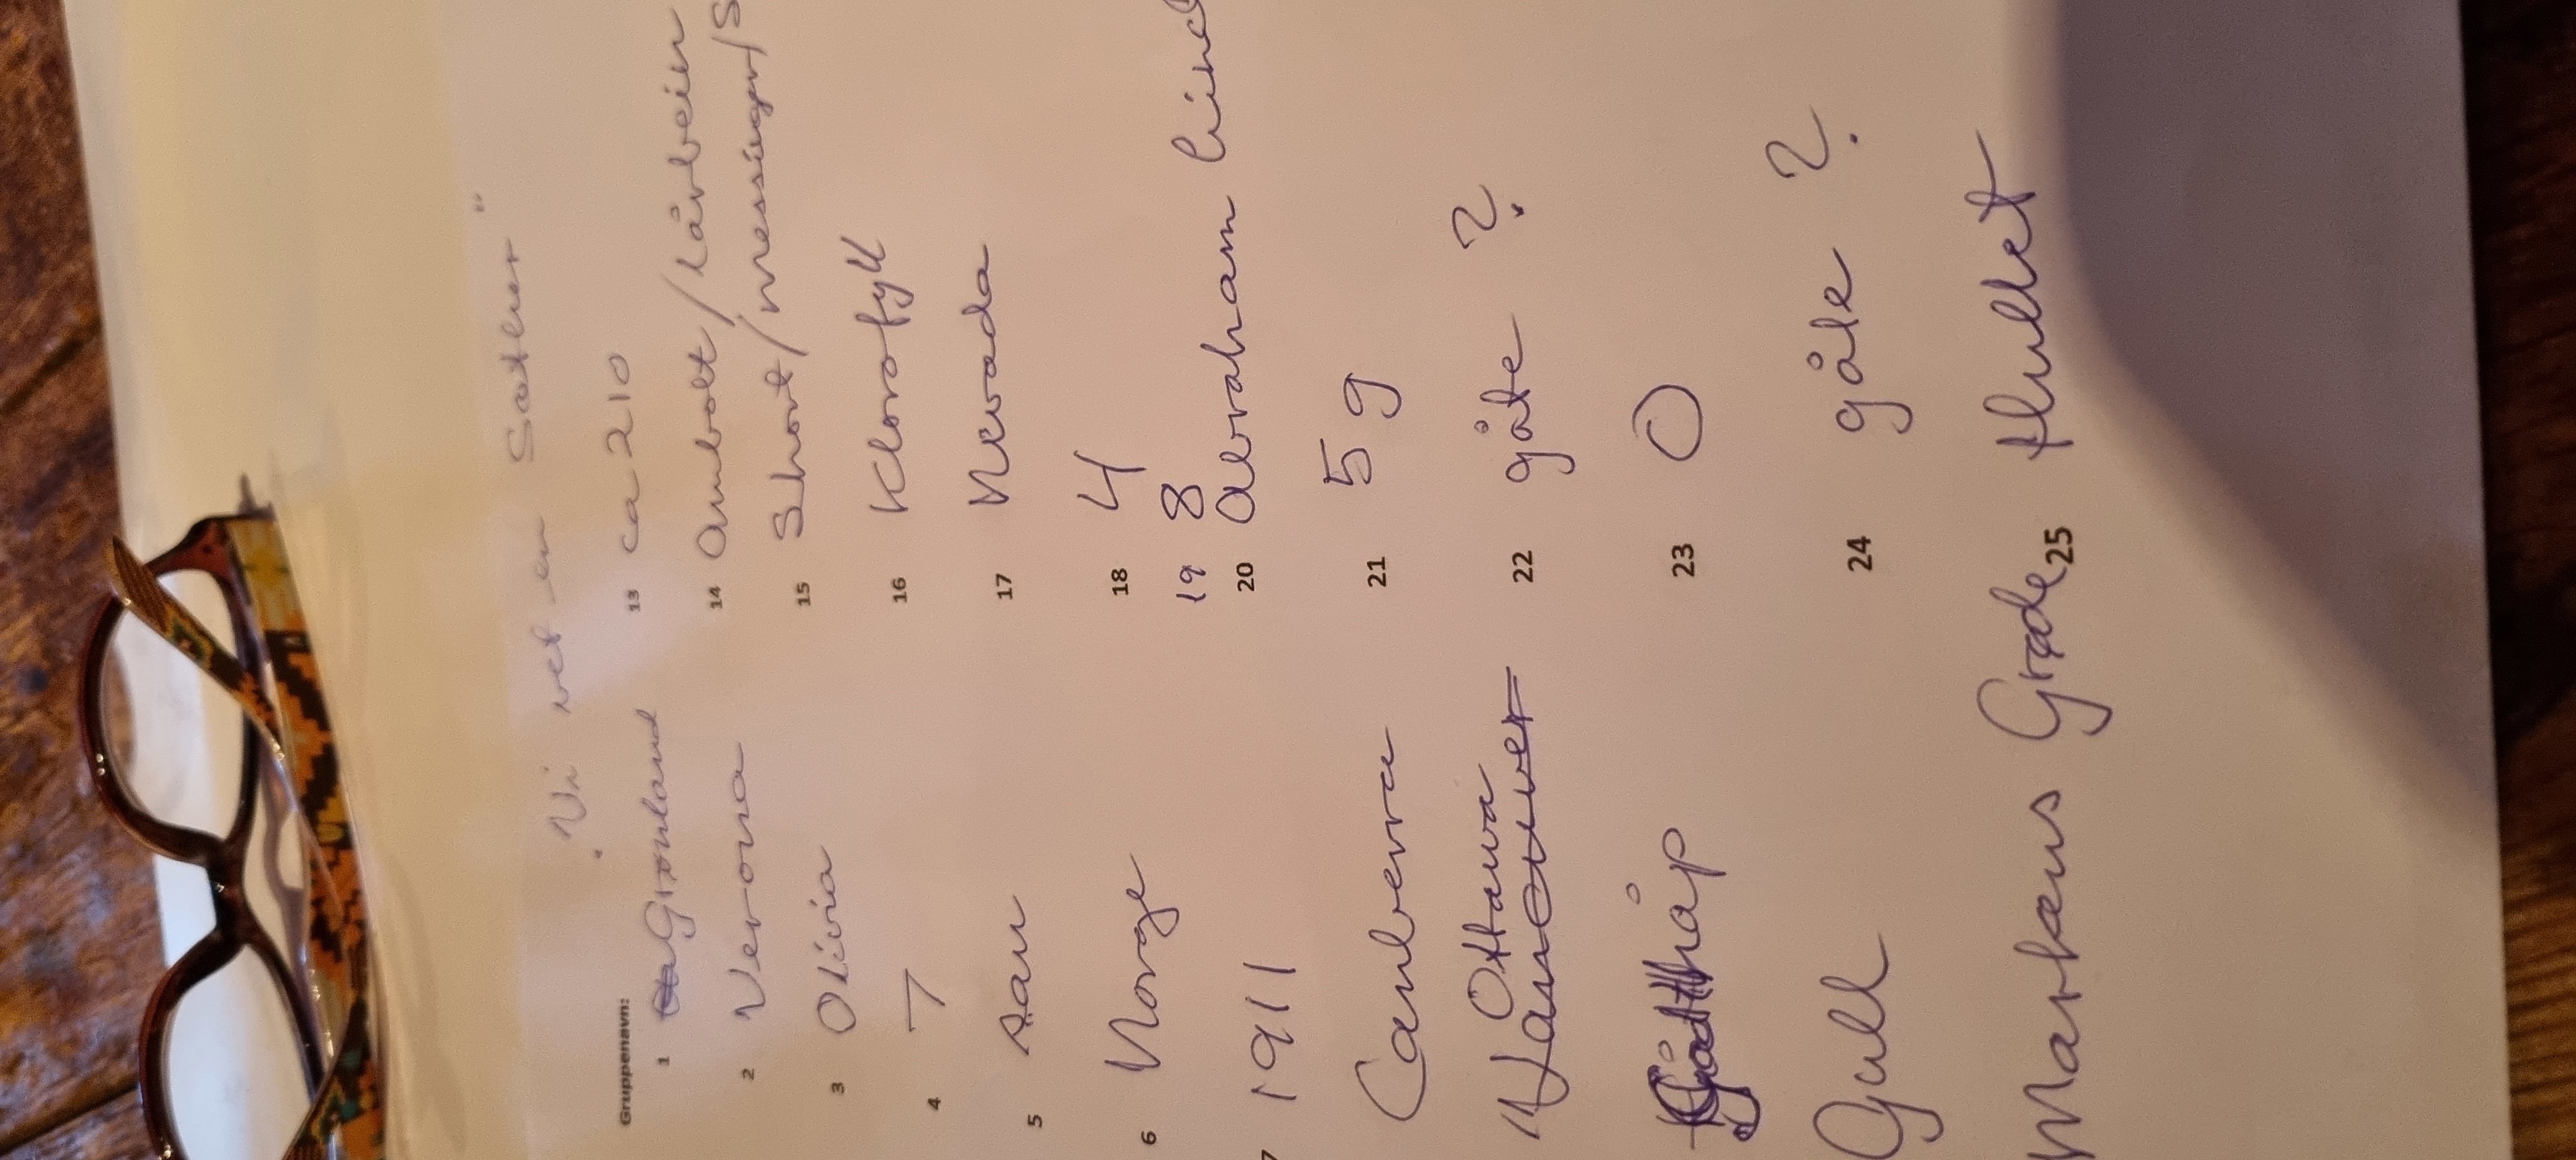 "Vi vet en Søtken"
Gruppenavn:
1 Grønland
2 Verona
3 Olivia
4 7
5 Aau
6 Norge
7 1911
Canberra
Ottawa
Godthåp
Gull
Markens Grøde
13 ca 210
14 Ambolt/Lårbein
15 Short/messenger/S
16 Klorofyll
17 Nevada
18 4
19 8
20 Abraham Linc
21 5 g
22 gåte ?
23 0
24 gåte ?
25 Hullet